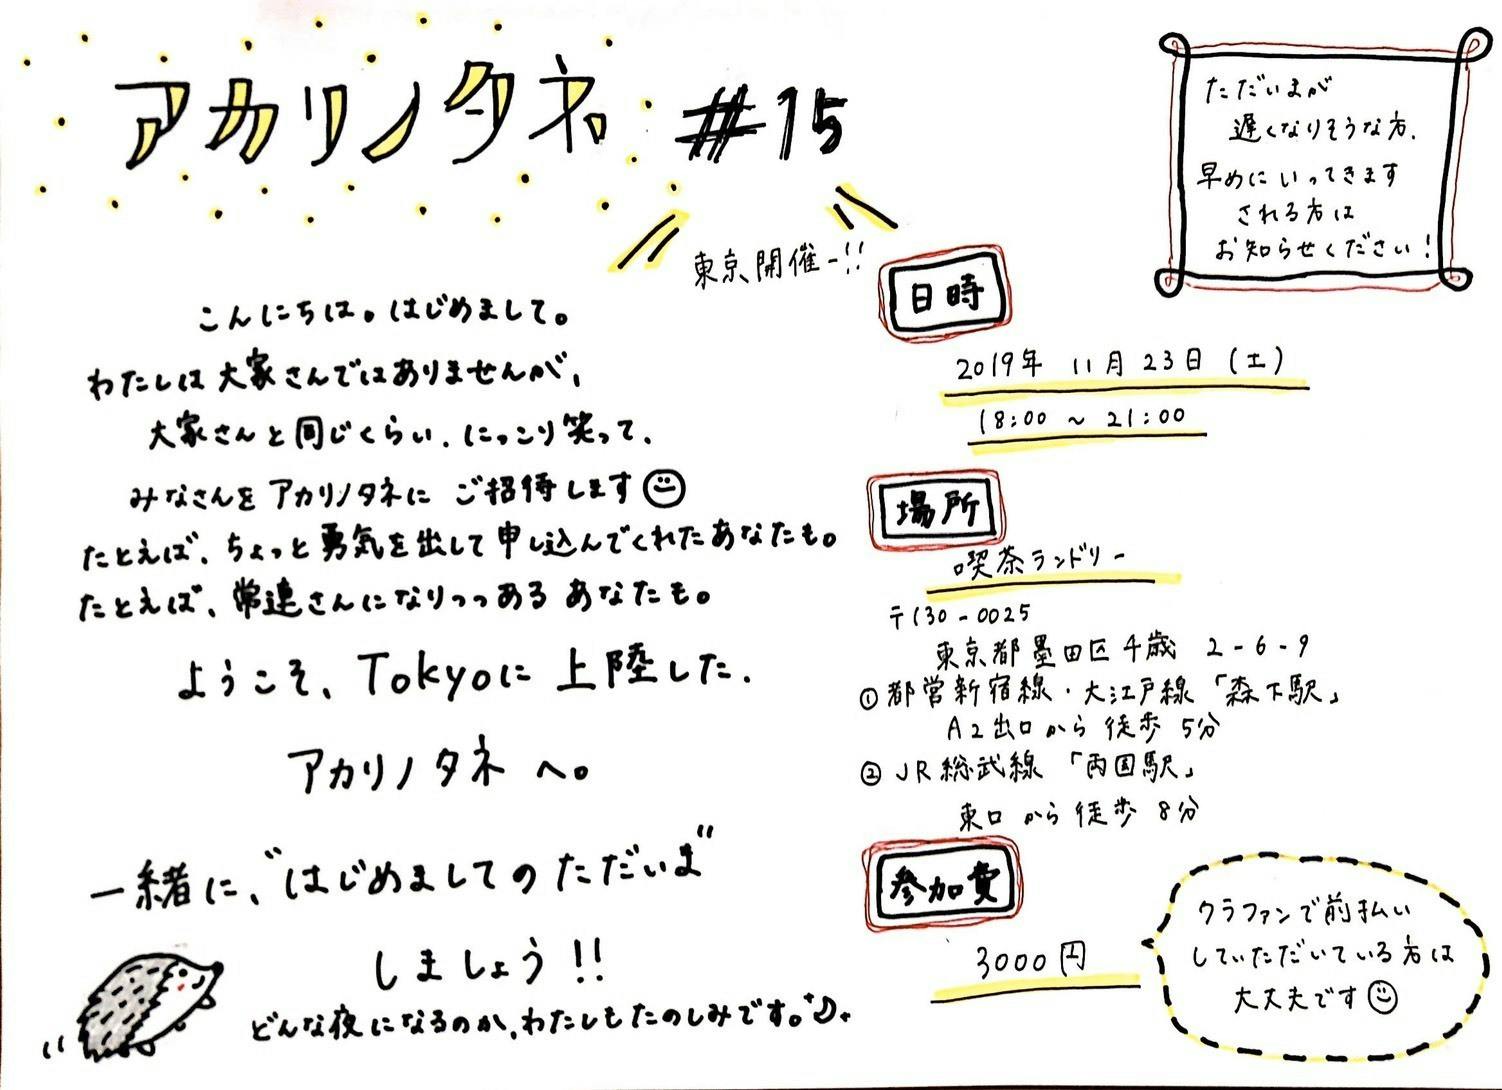 アカリノタネ #15
東京開催ー!!
ただいまが
遅くなりそうな方、
早めにいってきます
される方は
お知らせください!
こんにちは。はじめまして。
わたしは大家さんではありませんが、
大家さんと同じくらい、にっこり笑って、
みなさんをアカリノタネにご招待します
たとえば、ちょっと勇気を出して申し込んでくれたあなたも。
たとえば、常連さんになりつつあるあなたも。
ようこそ、Tokyoに上陸した、
アカリノタネへ。
一緒に、"はじめましてのただいま"
しましょう!!
どんな夜になるのか、わたしもたのしみです。
日時
2019年 11月23日(土)
18:00 ~ 21:00
場所
喫茶ランドリー
〒130-0025
東京都墨田区千歳 2-6-9
①都営新宿線・大江戸線「森下駅」
A2出口から徒歩5分
②JR総武線「両国駅」
東口から徒歩8分
参加費
3000円
クラファンで前払い
していただいている方は
大丈夫です